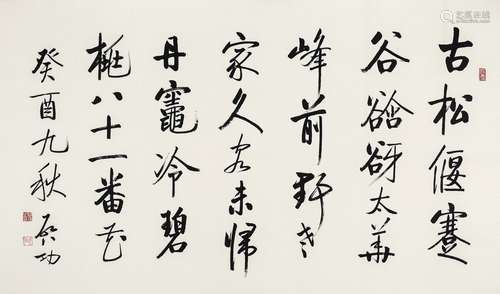 古松偃蹇
谷谽谺太華
峰前野老
家久客未帰
丹竈冷碧
桃八十一番花
癸酉九秋 启功